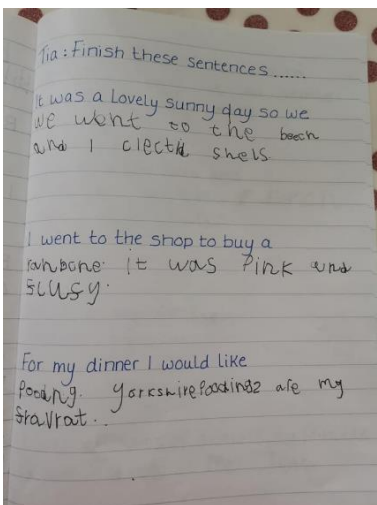 Tia: Finish these sentences......
It was a lovely sunny day so we
we went to the beech
and I clectid shels
I went to the shop to buy a
it was Pink and
For my dinner I would like
Pooding. yorkshire Poodingz are my
fravrat..